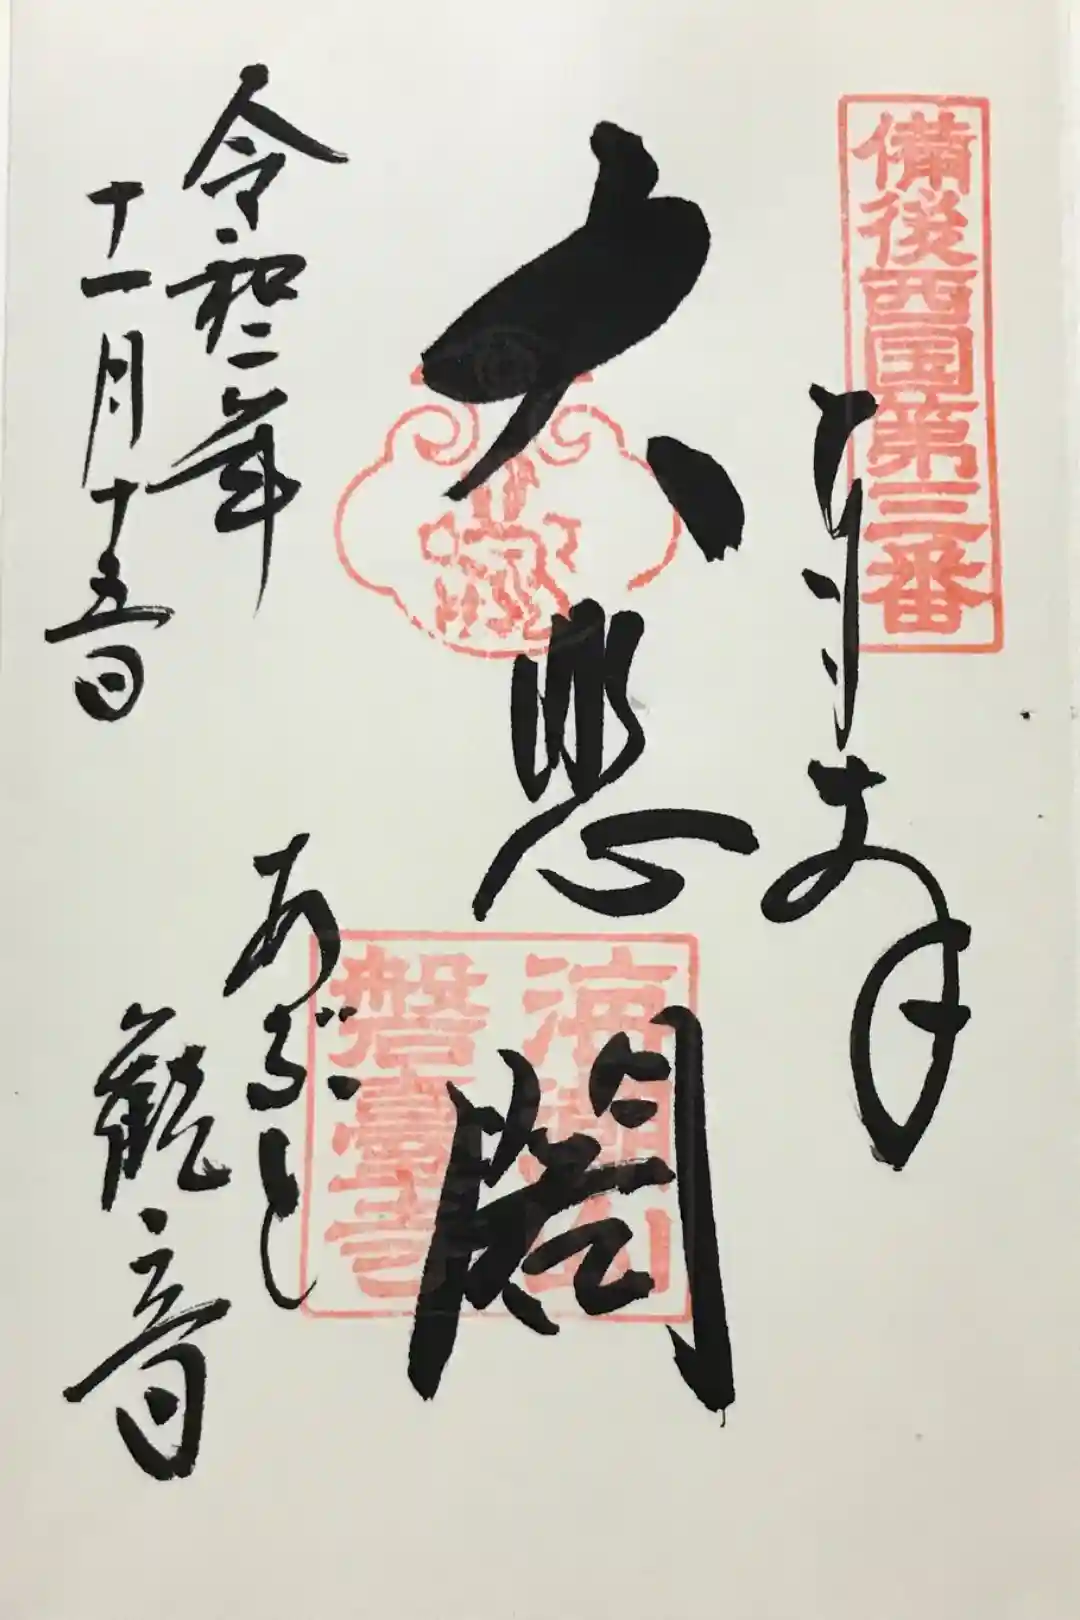 備後西国第三番
奉拝
大悲閣
海潮山
磐臺寺
令和二年
十一月十五日
あぶと
観音